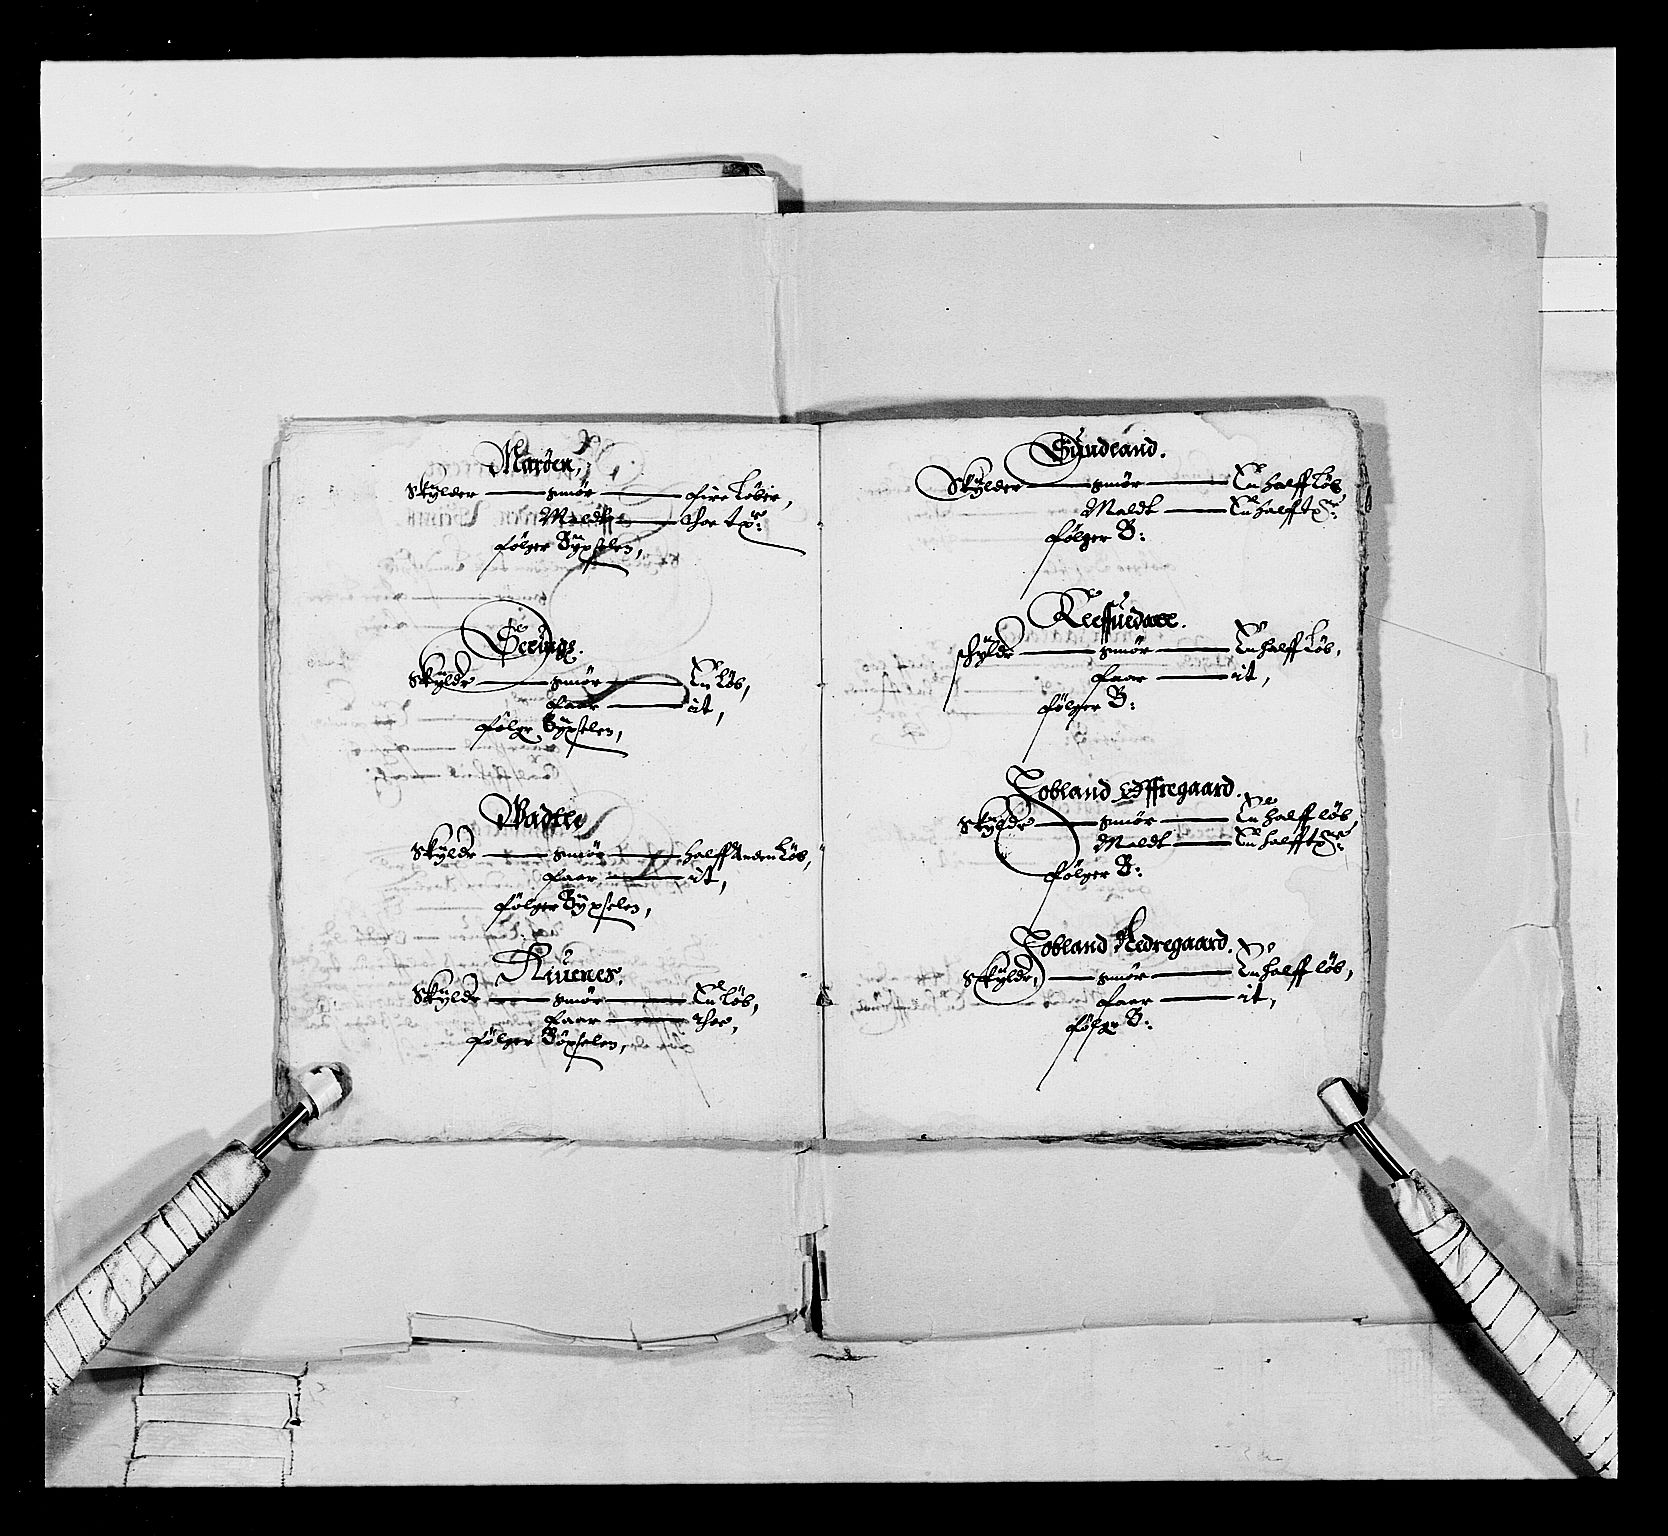 Maröen,
Skylder — smör — fire Löber,
Maldt — thoe txr:
følger Bÿxselen,
Seeings.
Skÿldr — smör — En Löb,
faar — it,
følgr Bÿxselen,
Wadtle
Skÿldr — smör — halff Anden Löb,
faar — it,
følger Bÿxselen,
Riuenes.
Skÿldr — smör — En Löb,
faar — thoe,
følger Böxselen,
Sundland.
Skÿlder — smör — En halff Löb
Maldt — En halff txr:
følger B:
Reeffuedaee.
skÿldr — smör — En halff Löb,
faar — it,
følger B:
Tobland Øffregaard.
Skÿldr — smör — En halff löb,
Maldt — En halff txr:
følger B:
Tobland Nedregaard.
Skÿldr, — smör — En halff löb,
faar — it,
følgr B: